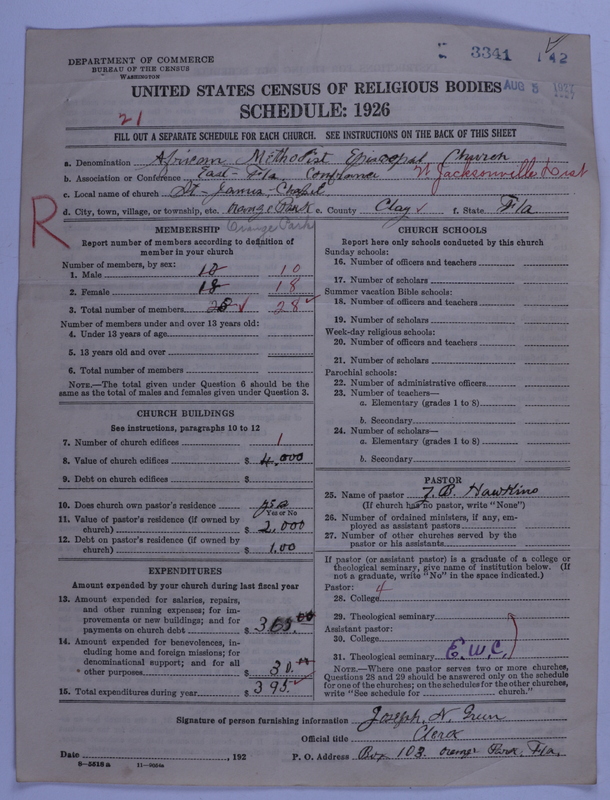 3341 142
DEPARTMENT OF COMMERCE
BUREAU OF THE CENSUS
WASHINGTON
AUG 5 1927
UNITED STATES CENSUS OF RELIGIOUS BODIES
SCHEDULE: 1926
21
FILL OUT A SEPARATE SCHEDULE FOR EACH CHURCH. SEE INSTRUCTIONS ON THE BACK OF THIS SHEET
a. Denomination African Methodist Episcopal Church
b. Association or Conference East Fla Conference W Jacksonville Dist
c. Local name of church St. James Chapel
d. City, town, village, or township, etc. Orange Park e. County Clay ✓ f. State Fla
Orange Park
R
MEMBERSHIP
Report number of members according to definition of
member in your church
Number of members, by sex:
1. Male 10 10
2. Female 18 18
3. Total number of members 28 ✓ 28 ✓
Number of members under and over 13 years old:
4. Under 13 years of age
5. 13 years old and over
6. Total number of members
NOTE.—The total given under Question 6 should be the
same as the total of males and females given under Question 3.
CHURCH BUILDINGS
See instructions, paragraphs 10 to 12
7. Number of church edifices 1
8. Value of church edifices $ 4,000
9. Debt on church edifices $
10. Does church own pastor's residence? yes
Yes or No
11. Value of pastor's residence (if owned by
church) $ 2,000
12. Debt on pastor's residence (if owned by
church) $ 1.00
EXPENDITURES
Amount expended by church during last fiscal year
13. Amount expended for salaries, repairs,
and other running expenses; for im-
provements or new buildings; and for
payments on church debt $ 365.00
14. Amount expended for benevolences, in-
cluding home and foreign missions; for
denominational support; and for all
other purposes $ 30.00
15. Total expenditures during year $ 395. ✓
CHURCH SCHOOLS
Report here only schools conducted by this church
Sunday schools:
16. Number of officers and teachers
17. Number of scholars
Summer vacation Bible schools:
18. Number of officers and teachers
19. Number of scholars
Week-day religious schools:
20. Number of officers and teachers
21. Number of scholars
Parochial schools:
22. Number of administrative officers
23. Number of teachers—
a. Elementary (grades 1 to 8)
b. Secondary
24. Number of scholars—
a. Elementary (grades 1 to 8)
b. Secondary
PASTOR
25. Name of pastor J. B. Hawkins
(If church has no pastor, write "None")
26. Number of ordained ministers, if any, em-
ployed as assistant pastors
27. Number of other churches served by the
pastor or his assistants
If pastor (or assistant pastor) is a graduate of a college or
theological seminary, give name of institution below. (If
not a graduate, write "No" in the space indicated.)
Pastor: 4
28. College
29. Theological seminary
Assistant pastor:
30. College
31. Theological seminary E.W.C.
NOTE.—Where one pastor serves two or more churches,
Questions 28 and 29 should be answered only on the schedule
for one of the churches; on the schedules for the other churches,
write "See schedule for church."
Signature of person furnishing information Joseph N. Green
Official title Clerk
Date , 192 P. O. Address Box 103 Orange Park, Fla.
8—5518a 11—9054a